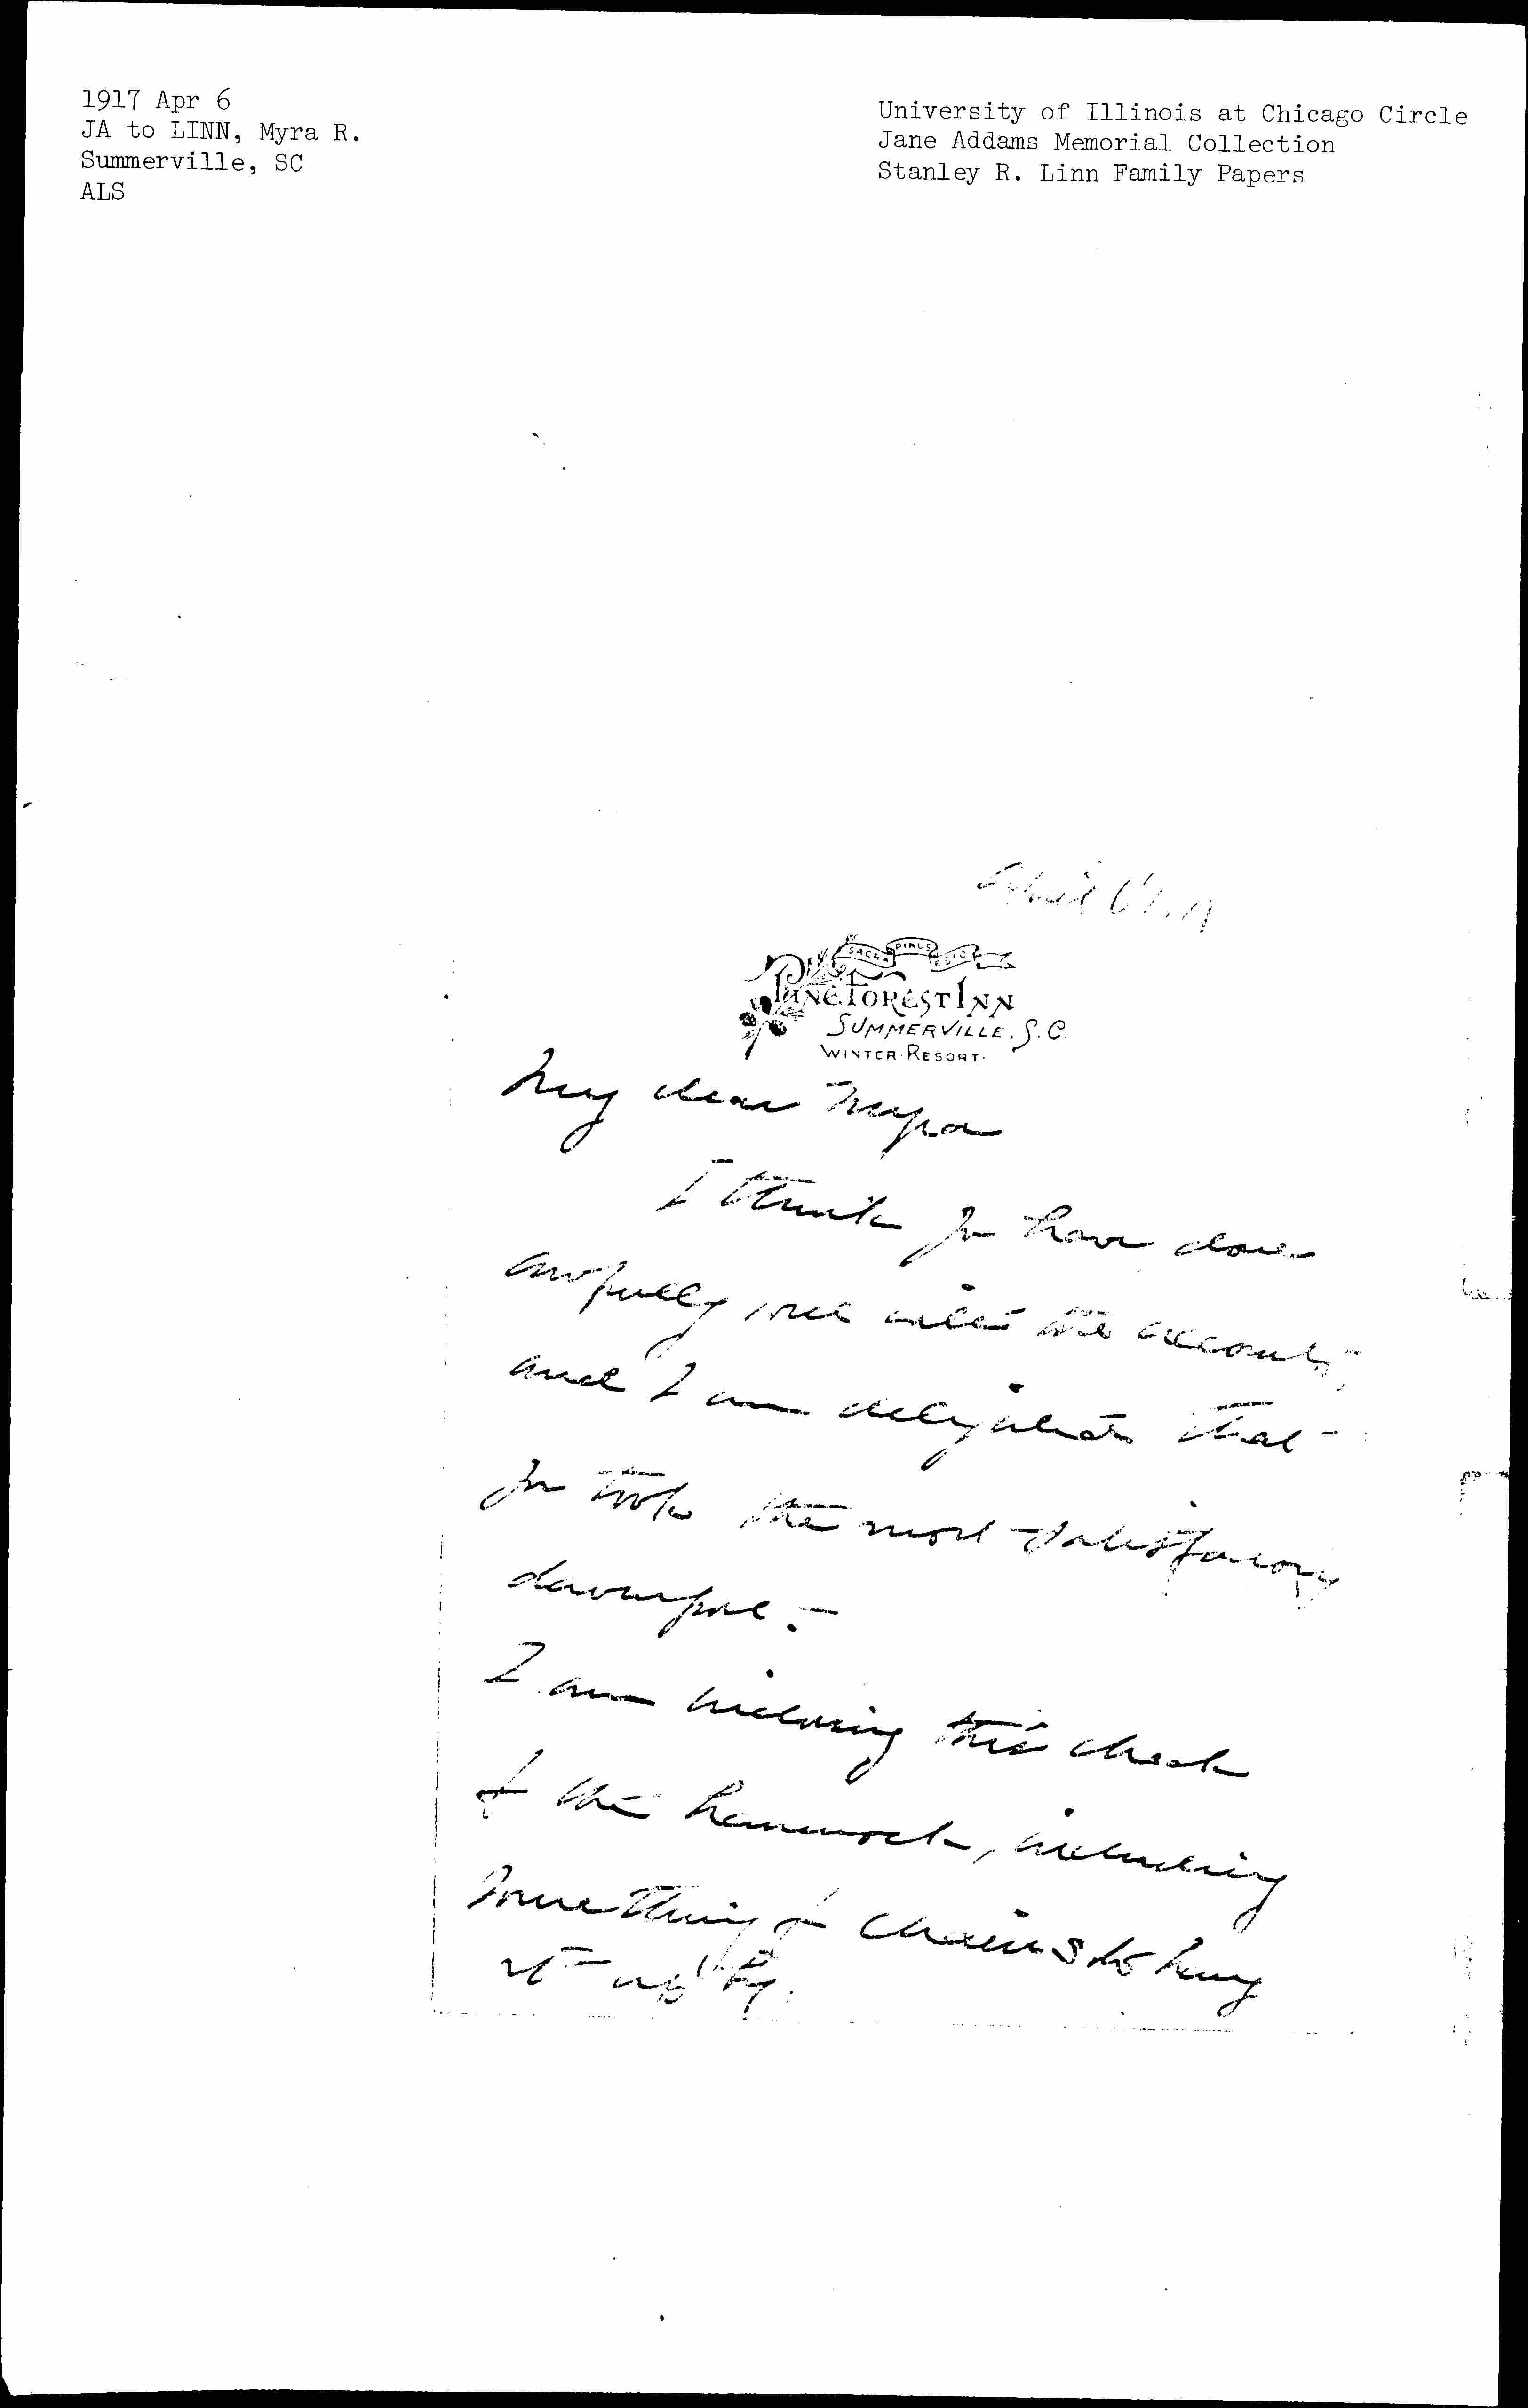 1917 Apr 6
JA to LINN, Myra R.
Summerville, SC
ALS
University of Illinois at Chicago Circle
Jane Addams Memorial Collection
Stanley R. Linn Family Papers
April 6" 17
SACRA PINUS ESTO
PINE FOREST INN
SUMMERVILLE, S.C.
WINTER RESORT.
My dear Myra
I think you have done
awfully well with the accounts,
and I am delighted that
you took the most satisfactory
davenport.
I am inclosing this check
for the hammock, including
something for chains to hang
it up by.